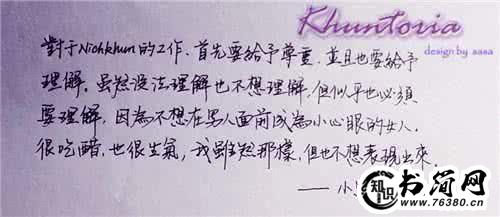 Khuntoria
design by sasa
對于Nichkhun的工作．首先要給予尊重．並且也要給予
理解．虽然没法理解也不想理解．但似乎也必須
要理解，因為不想在男人面前成為小心眼的女人．
很吃醋．也很生氣，我雖然那樣，但也不想表現出來．
—— 小
知识
书简网
www.76380.cn